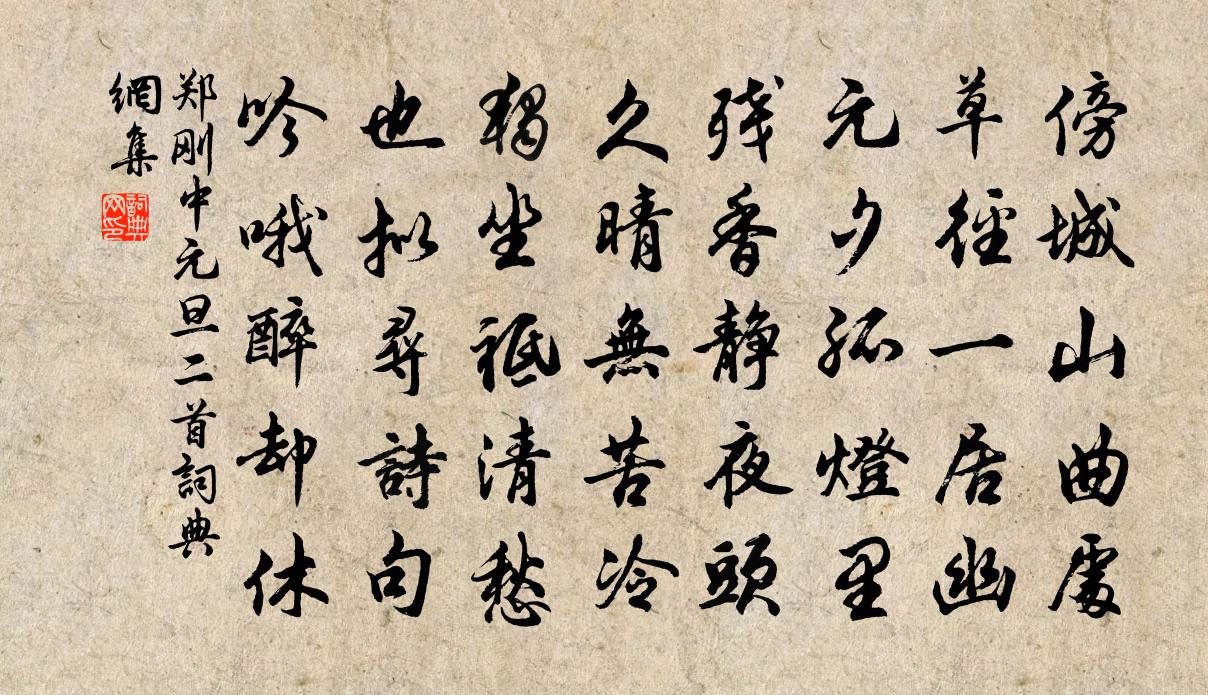 傍城山曲處
草徑一居幽
元夕孤燈里
残香静夜頭
久晴無苦冷
獨坐祗清愁
也拟尋詩句
吟哦醉却休
郑刚中元旦二首詞典
網集
詞典
网印